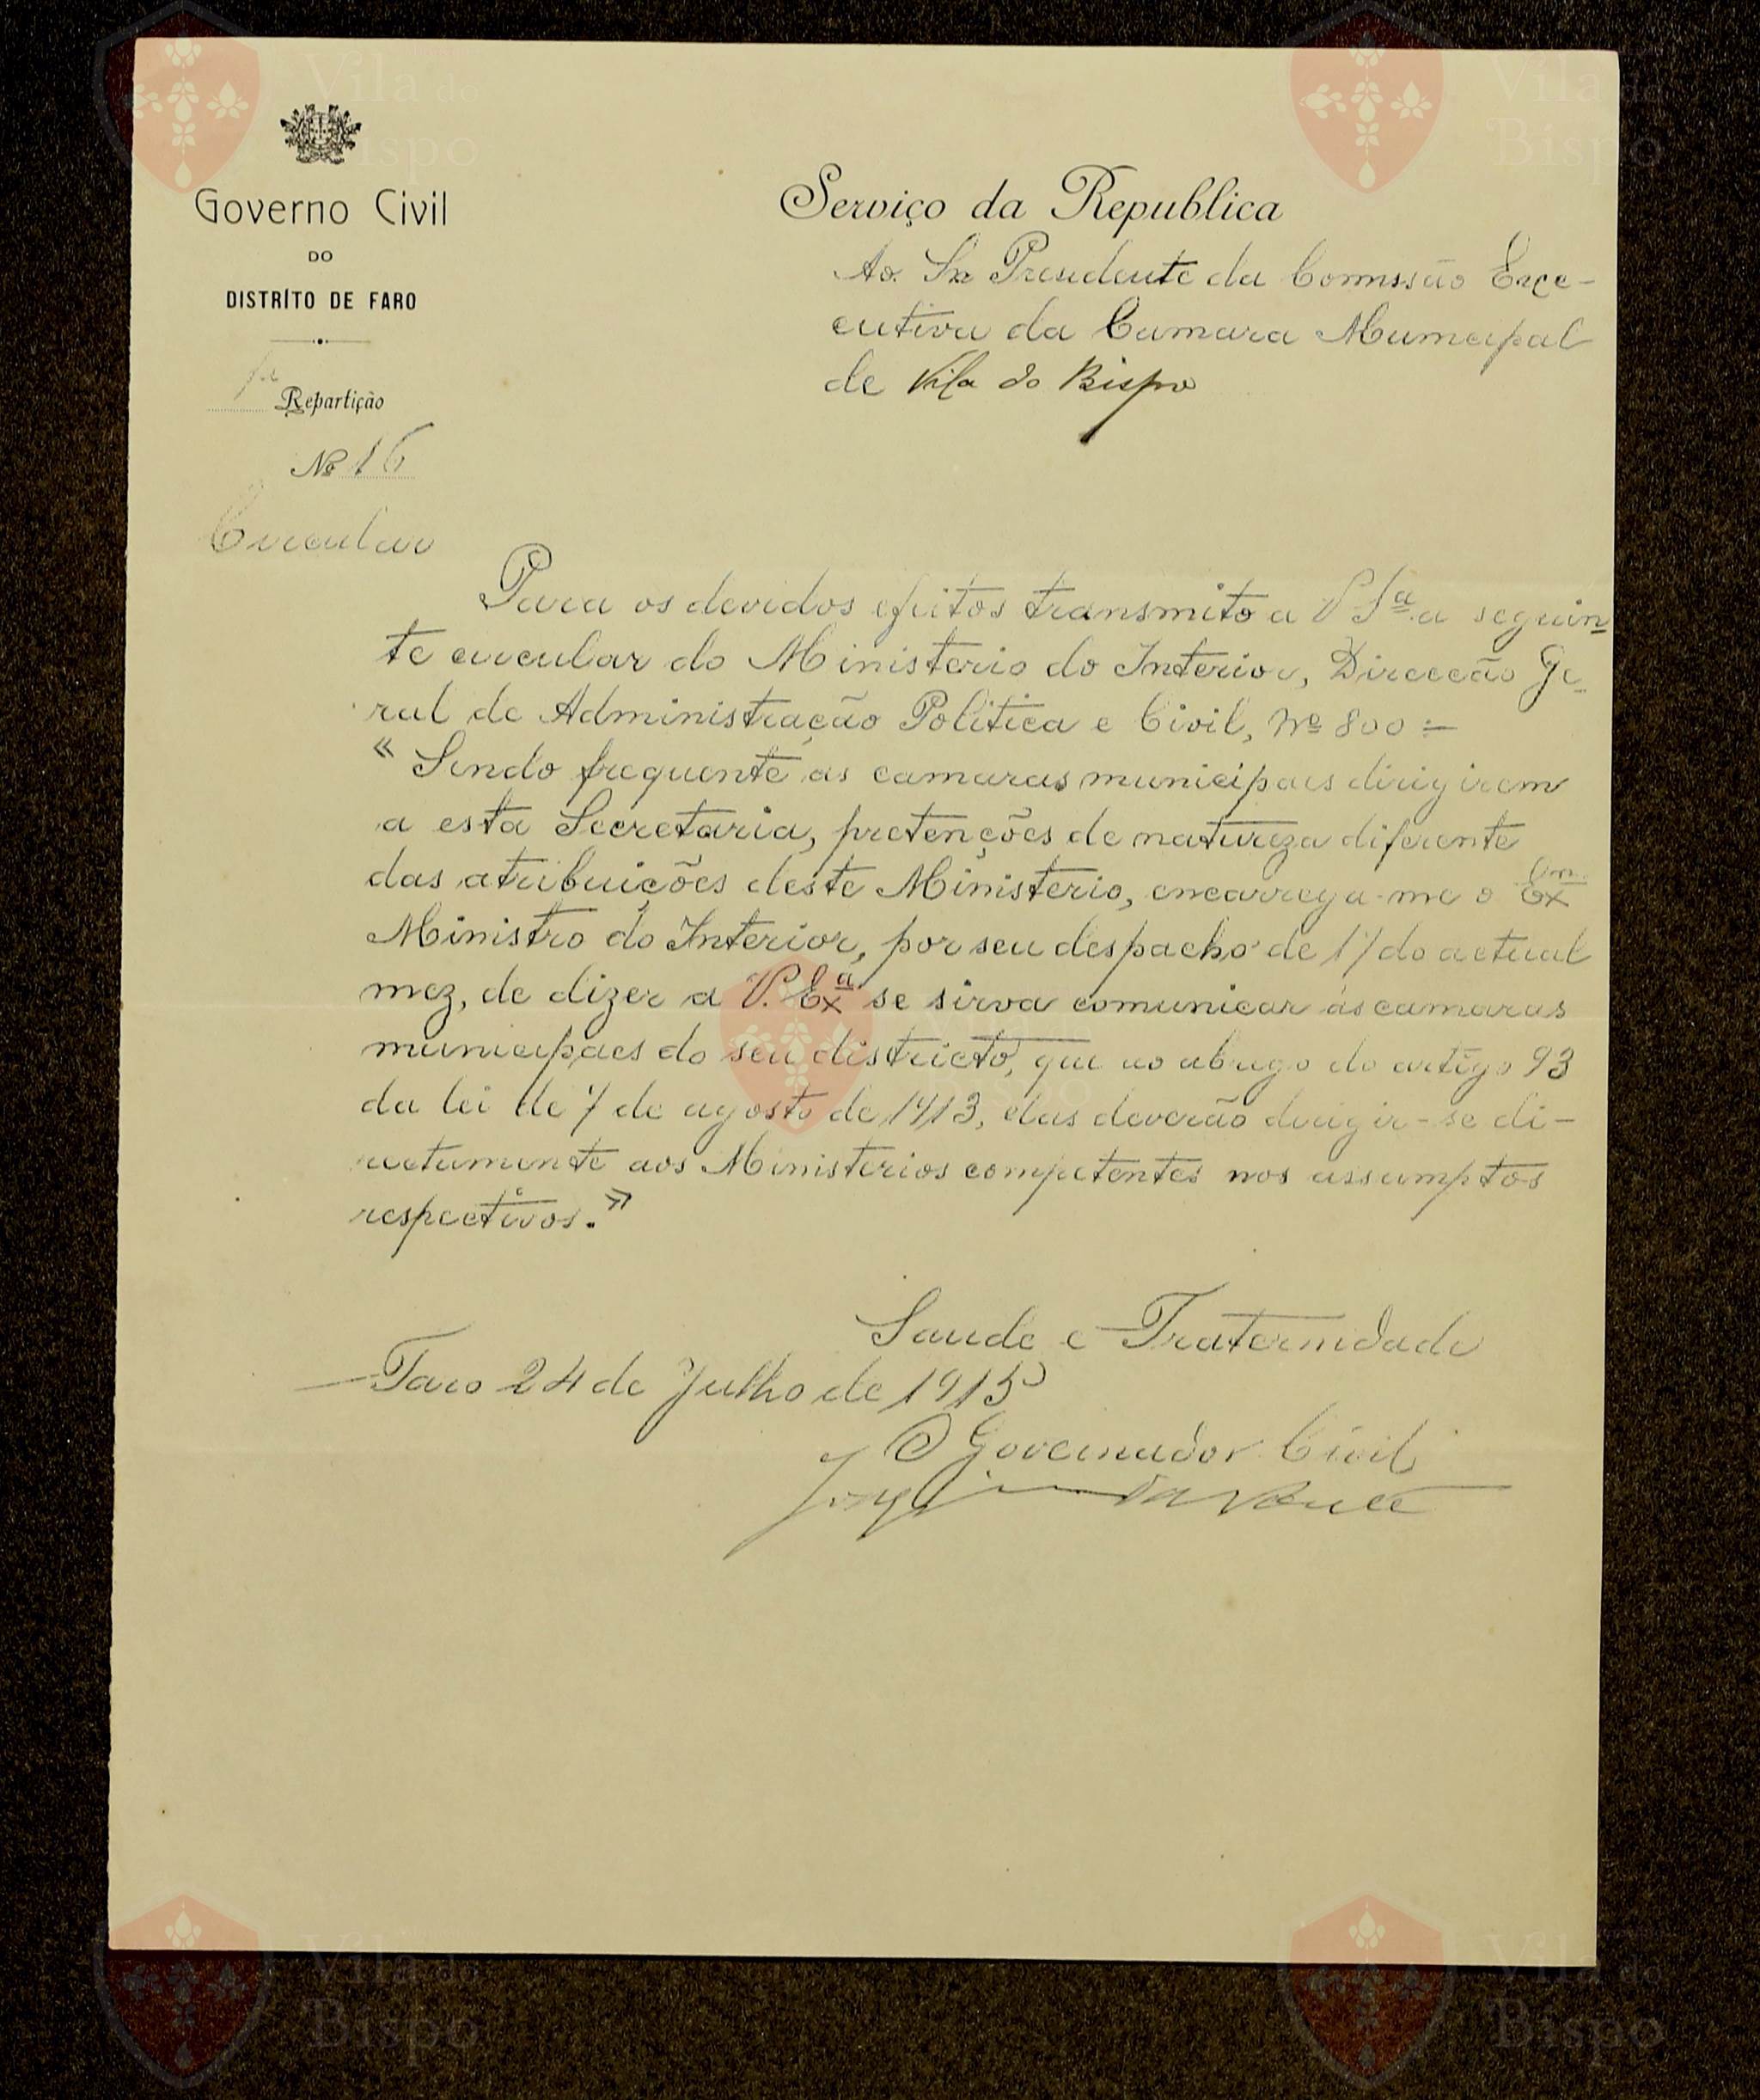 Governo Civil
DO
DISTRÍTO DE FARO
1ª Repartição
Nº 16
Circular
Serviço da Republica
Ao Sr. Presidente da Comissão Exe-
cutiva da Camara Municipal
de Vila do Bispo
Para os devidos efeitos transmito a V. Sª a seguin-
te circular do Ministerio do Interior, Direcção Ge-
ral de Administração Politica e Civil, Nº 800 :-
« Sendo frequente as camaras municipaes dirigirem
a esta Secretaria, pretenções de natureza diferente
das atribuições deste Ministerio, encarrega-me o Exmo.
Ministro do Interior, por seu despacho de 17 do actual
mez, de dizer a V. Exª se sirva comunicar ás camaras
municipaes do seu districto, que ao abrigo do artigo 93
da lei de 7 de agosto de 1913, elas deverão dirigir-se di-
rectamente aos Ministerios competentes nos assumptos
respectivos. »
Saude e Fraternidade
Faro 24 de Julho de 1915
O Governador Civil
Vila do
Bispo
Vila do
Bispo
Vila do
Bispo
Vila do
Bispo